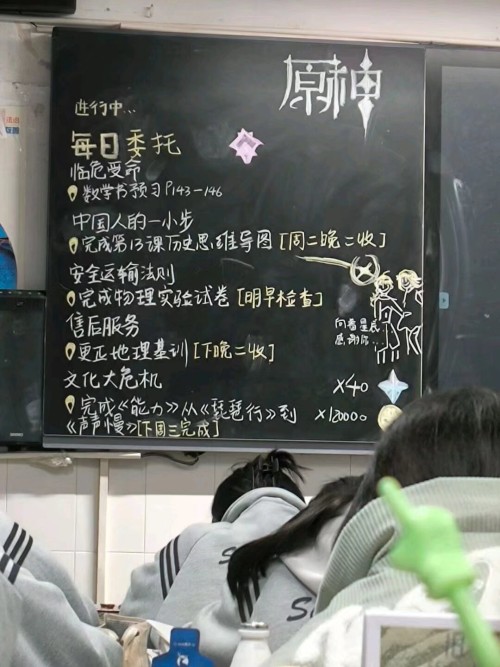 原神
进行中...
每日委托
临危受命
数学书预习P143-146
中国人的一小步
完成第13课历史思维导图[周二晚二收]
安全运输法则
完成物理实验试卷[明早检查]
售后服务
更正地理基训[下晚二收]
文化大危机
完成《能力》从《琵琶行》到
《声声慢》[下周三完成]
向着星辰
×40
×12000